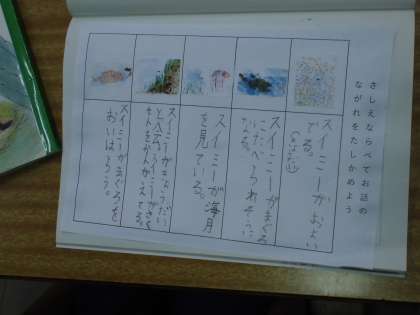 さしえをならべてお話の
ながれをたしかめよう
スイミーがおよい
でる。
スイミーがまぐろ
にたべられそうに
なった。
スイミーが海月
を見ている。
スイミーがきょうだい
スイミーがまぐろを
おいはらう。